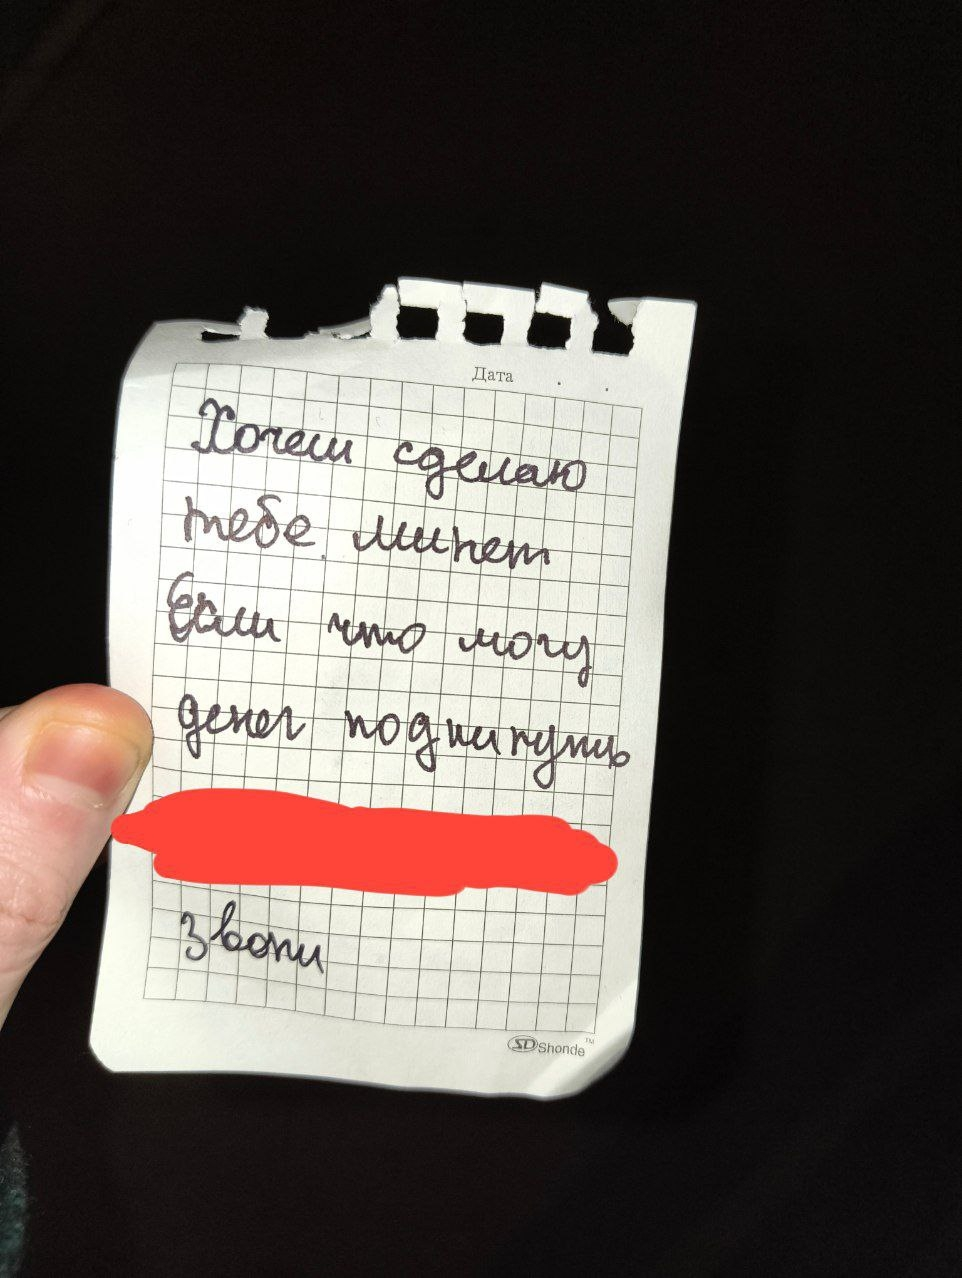 Дата . .
Хочеш сделаю
тебе минет
Если что могу
денег подкинуть
звони
SD Shonde™